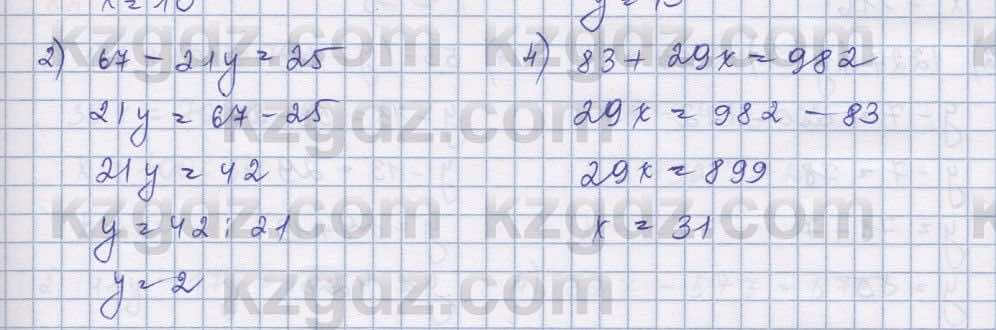 2) 67 - 21y = 25
21y = 67 - 25
21y = 42
y = 42 : 21
y = 2
4) 83 + 29x = 982
29x = 982 - 83
29x = 899
x = 31
kzgdz.com
kzgdz.com
kzgdz.com
kzgdz.com
kzgdz.com
kzgdz.com